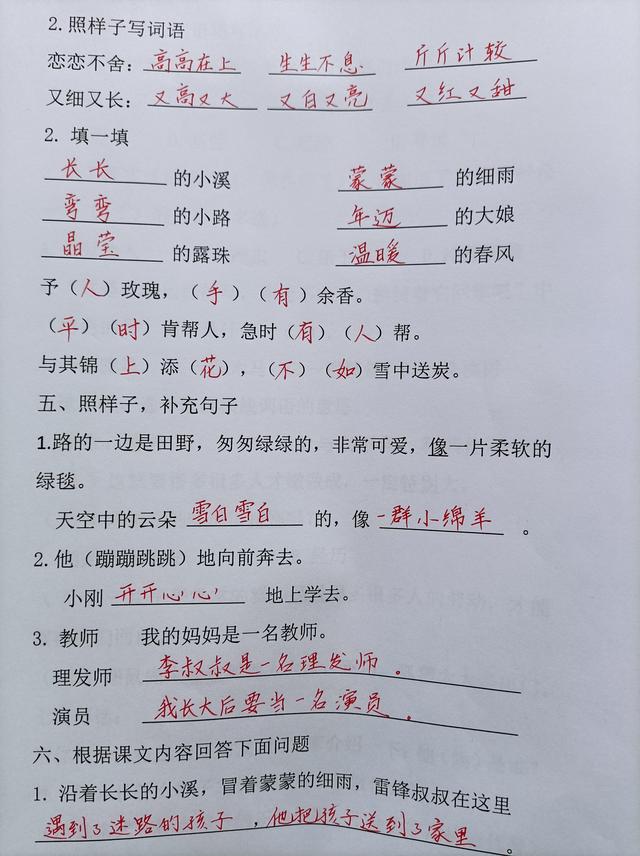 2.照样子写词语
恋恋不舍：高高在上 生生不息 斤斤计较
又细又长：又高又大 又白又亮 又红又甜
2. 填一填
长长 的小溪 蒙蒙 的细雨
弯弯 的小路 年迈 的大娘
晶莹 的露珠 温暖 的春风
予（人）玫瑰，（手）（有）余香。
（平）（时）肯帮人，急时（有）（人）帮。
与其锦（上）添（花），（不）（如）雪中送炭。
五、照样子，补充句子
1.路的一边是田野，匆匆绿绿的，非常可爱，像一片柔软的
绿毯。
天空中的云朵 雪白雪白 的，像 一群小绵羊 。
2. 他（蹦蹦跳跳）地向前奔去。
小刚 开开心心 地上学去。
3. 教师 我的妈妈是一名教师。
理发师 李叔叔是一名理发师。
演员 我长大后要当一名演员。
六、根据课文内容回答下面问题
1. 沿着长长的小溪，冒着蒙蒙的细雨，雷锋叔叔在这里
遇到了迷路的孩子，他把孩子送到了家里。